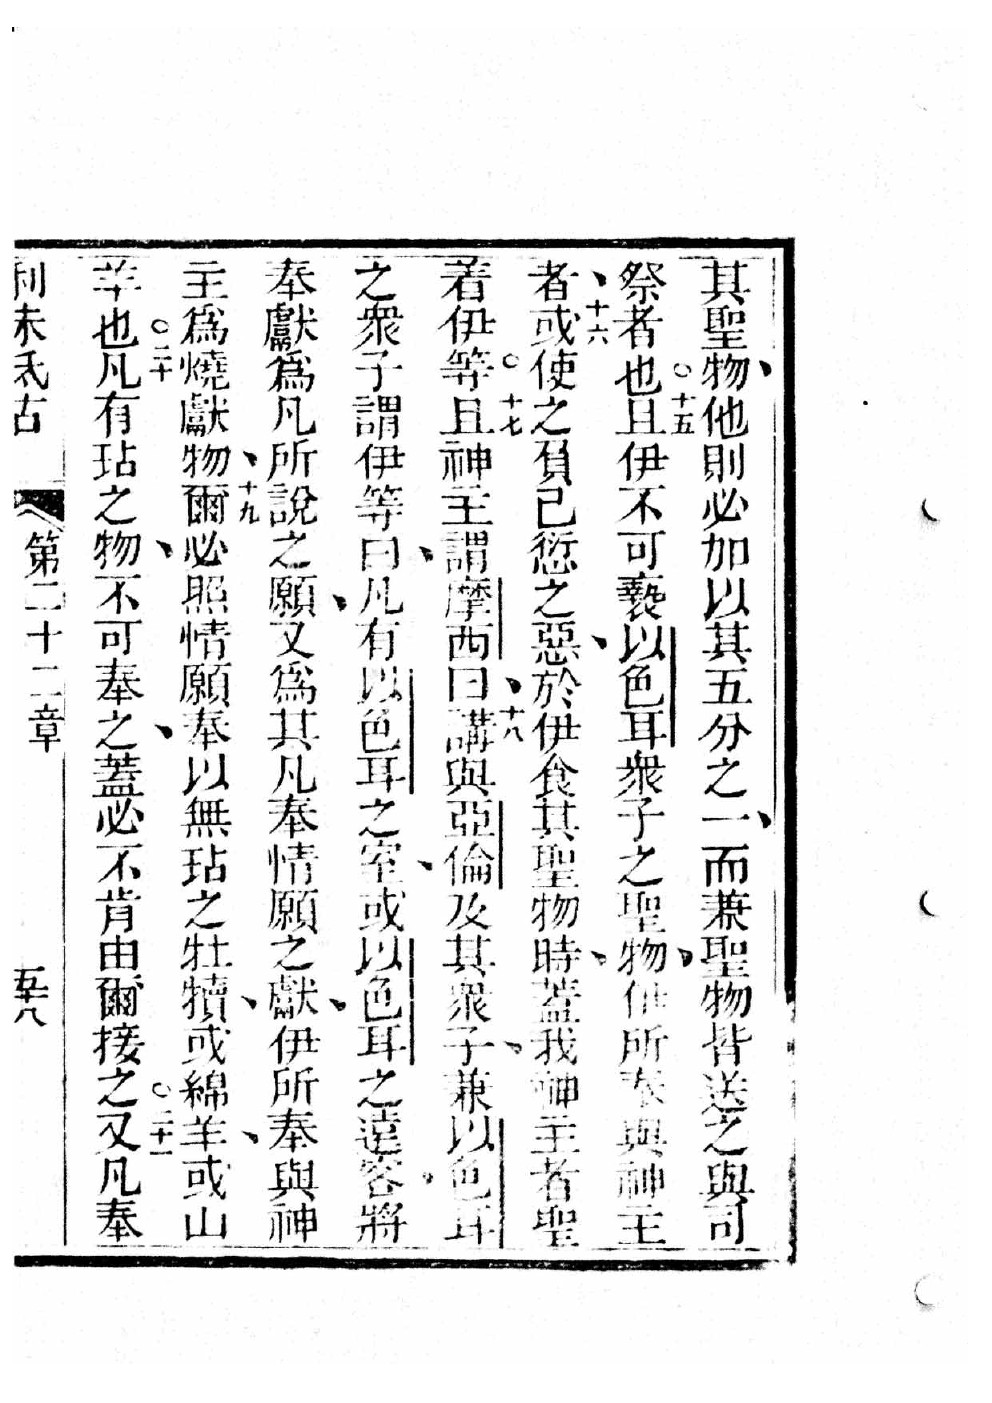 其聖物、他則必加以其五分之一、而兼聖物皆送之與司
祭者也○十五且伊不可褻以色耳衆子之聖物、伊所奉與神主
者、十六或使之負己愆之惡、於伊食其聖物時、蓋我神主者聖
着伊等○十七且神主謂摩西曰、十八講與亞倫及其衆子、兼以色耳
之衆子謂伊等曰、凡有以色耳之室、或以色耳之遠客、將
奉獻爲凡所說之願、又爲其凡奉情願之獻、伊所奉與神
主爲燒獻物、十九爾必照情願奉以無玷之牡犢、或綿羊、或山
羊也○二十凡有玷之物、不可奉之、蓋必不肯由爾接之○二十一又凡奉
利未氏古 第二十二章 五十八